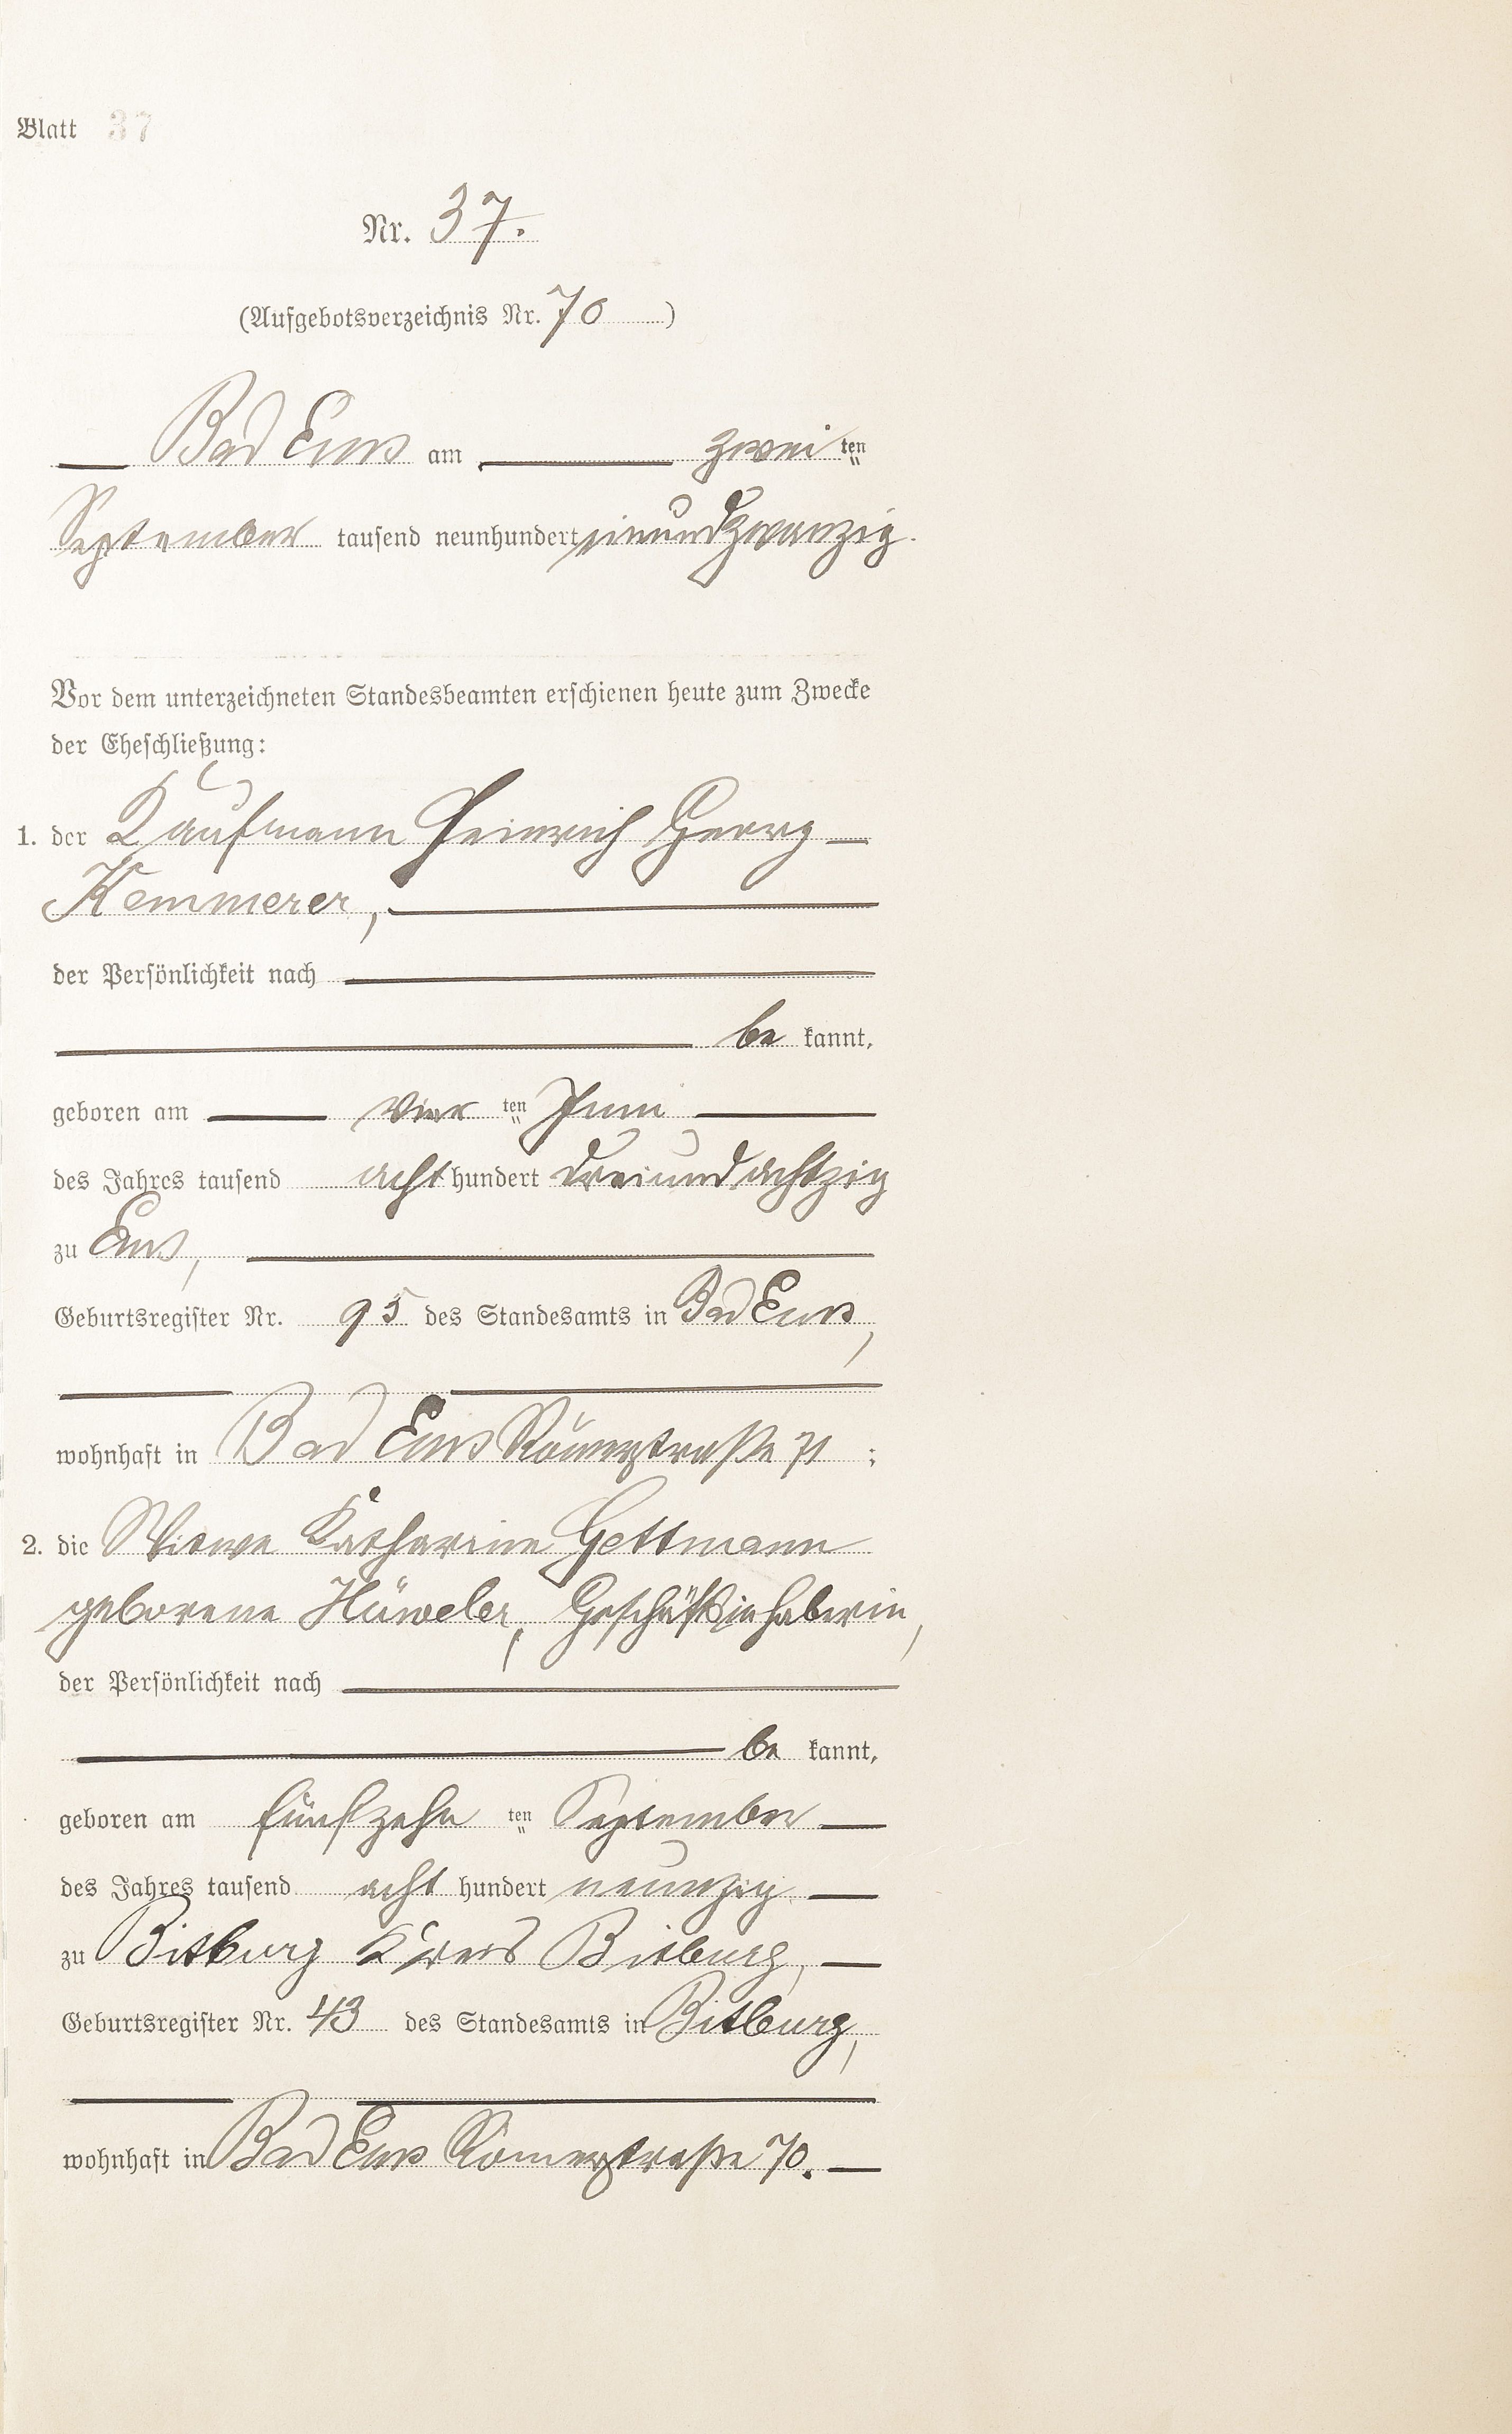 Blatt 37
Nr. 37.
(Aufgebotsverzeichnis Nr. 70)
Bad Ems am zwei ten
September tausend neunhundert einundzwanzig.
Vor dem unterzeichneten Standesbeamten erschienen heute zum Zwecke
der Eheschließung:
1. der Kaufmann Heinrich Georg
Kemmerer,
der Persönlichkeit nach
be kannt,
geboren am vier ten Juni
des Jahres tausend acht hundert dreiundachtzig
zu Ems,
Geburtsregister Nr. 95 des Standesamts in Bad Ems,
wohnhaft in Bad Ems Römerstraße 71 ;
2. die Witwe Katharine Gottmann
geborene Hüweler, Geschäftsinhaberin,
der Persönlichkeit nach
be kannt,
geboren am fünfzehn ten September
des Jahres tausend acht hundert neunzig
zu Bitburg Kreis Bitburg,
Geburtsregister Nr. 43 des Standesamts in Bitburg,
wohnhaft in Bad Ems Römerstraße 70.